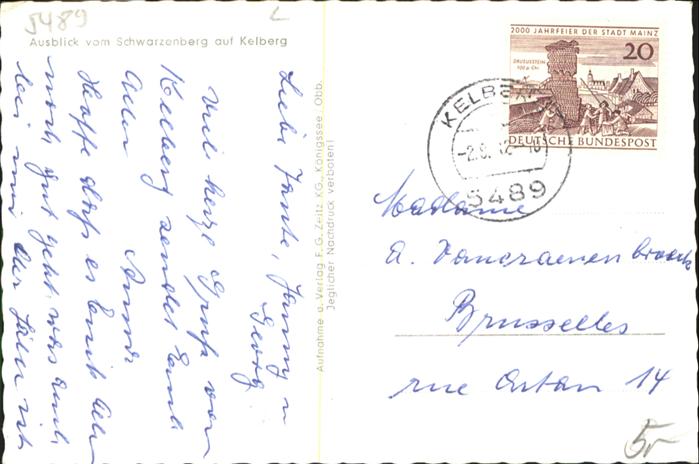 5489
Ausblick vom Schwarzenberg auf Kelberg
Liebe Tante, Fanny u
Georg
Viele herzl Grüße von
Kelberg sendet Euch
Allen Anna
Hoffe daß es Euch allen
noch gut geht was auch
bei mir der Fall ist
Aufnahme u. Verlag F. G. Zeitz KG., Königssee/Obb.
Jeglicher Nachdruck verboten!
2000 JAHRFEIER DER STADT MAINZ
20
DRUSUSSTEIN
100 n. Chr.
DEUTSCHE BUNDESPOST
KELBERG
5489
Madame
A. Vancraenenbroeck
Brusselles
rue Artan 14
5,-